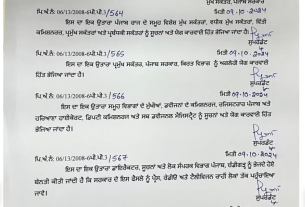 ਮੁੱਖ ਸਕੱਤਰ, ਪੰਜਾਬ ਸਰਕਾਰ
ਪਿ.ਅੰ.ਨੰ: 06/13/2008-6ਪੀ.ਪੀ.3/564 ਮਿਤੀ 09.10.2024
ਇਸ ਦਾ ਇਕ ਉਤਾਰਾ ਪੰਜਾਬ ਰਾਜ ਦੇ ਸਮੂਹ ਵਿਸ਼ੇਸ਼ ਮੁੱਖ ਸਕੱਤਰ, ਵਧੀਕ ਮੁੱਖ ਸਕੱਤਰ, ਵਿੱਤੀ
ਕਮਿਸ਼ਨਰ, ਪ੍ਰਮੁੱਖ ਸਕੱਤਰਾਂ ਅਤੇ ਪ੍ਰਬੰਧਕੀ ਸਕੱਤਰਾਂ ਨੂੰ ਸੂਚਨਾ ਅਤੇ ਯੋਗ ਕਾਰਵਾਈ
ਹਿੱਤ ਭੇਜਿਆ ਜਾਂਦਾ ਹੈ।
ਸੁਪਰਡੰਟ
ਪਿ.ਅੰ.ਨੰ: 06/13/2008-6ਪੀ.ਪੀ.3/565 ਮਿਤੀ 09.10.2024
ਇਸ ਦਾ ਇਕ ਉਤਾਰਾ ਪ੍ਰਮੁੱਖ ਸਕੱਤਰ, ਪੰਜਾਬ ਸਰਕਾਰ, ਕਿਰਤ ਵਿਭਾਗ ਨੂੰ ਅਗਲੇਰੀ ਯੋਗ ਕਾਰਵਾਈ
ਹਿੱਤ ਭੇਜਿਆ ਜਾਂਦਾ ਹੈ।
ਸੁਪਰਡੰਟ
ਪਿ.ਅੰ.ਨੰ: 06/13/2008-6ਪੀ.ਪੀ.3/566 ਮਿਤੀ 09.10.2024
ਇਸ ਦਾ ਇਕ ਉਤਾਰਾ ਸਮੂਹ ਵਿਭਾਗਾਂ ਦੇ ਮੁੱਖੀਆਂ, ਡਵੀਜ਼ਨਾਂ ਦੇ ਕਮਿਸ਼ਨਰ, ਰਜਿਸਟਰਾਰ ਪੰਜਾਬ ਅਤੇ
ਹਰਿਆਣਾ ਹਾਈਕੋਰਟ, ਡਿਪਟੀ ਕਮਿਸ਼ਨਰ ਅਤੇ ਸਬ ਡਵੀਜ਼ਨਲ ਮੈਜਿਸਟ੍ਰੇਟਾਂ ਨੂੰ ਸੂਚਨਾ ਅਤੇ ਯੋਗ ਕਾਰਵਾਈ ਹਿੱਤ
ਭੇਜਿਆ ਜਾਂਦਾ ਹੈ।
ਸੁਪਰਡੰਟ
ਪਿ.ਅੰ.ਨੰ: 06/13/2008-6ਪੀ.ਪੀ.3/567 ਮਿਤੀ 09.10.2024
ਇਸ ਦਾ ਇਕ ਉਤਾਰਾ ਡਾਇਰੈਕਟਰ, ਸੂਚਨਾ ਅਤੇ ਲੋਕ ਸੰਪਰਕ ਵਿਭਾਗ ਪੰਜਾਬ, ਚੰਡੀਗੜ੍ਹ ਨੂੰ ਭੇਜਦੇ ਹੋਏ
ਬੇਨਤੀ ਕੀਤੀ ਜਾਂਦੀ ਹੈ ਕਿ ਸਰਕਾਰ ਦੇ ਇਸ ਫੈਸਲੇ ਨੂੰ ਪ੍ਰੈਸ, ਰੇਡੀਓ ਅਤੇ ਟੈਲੀਵਿਜ਼ਨ ਰਾਹੀਂ ਲੋਕਾਂ ਤੱਕ ਪਹੁੰਚਾਇਆ
ਜਾਵੇ।